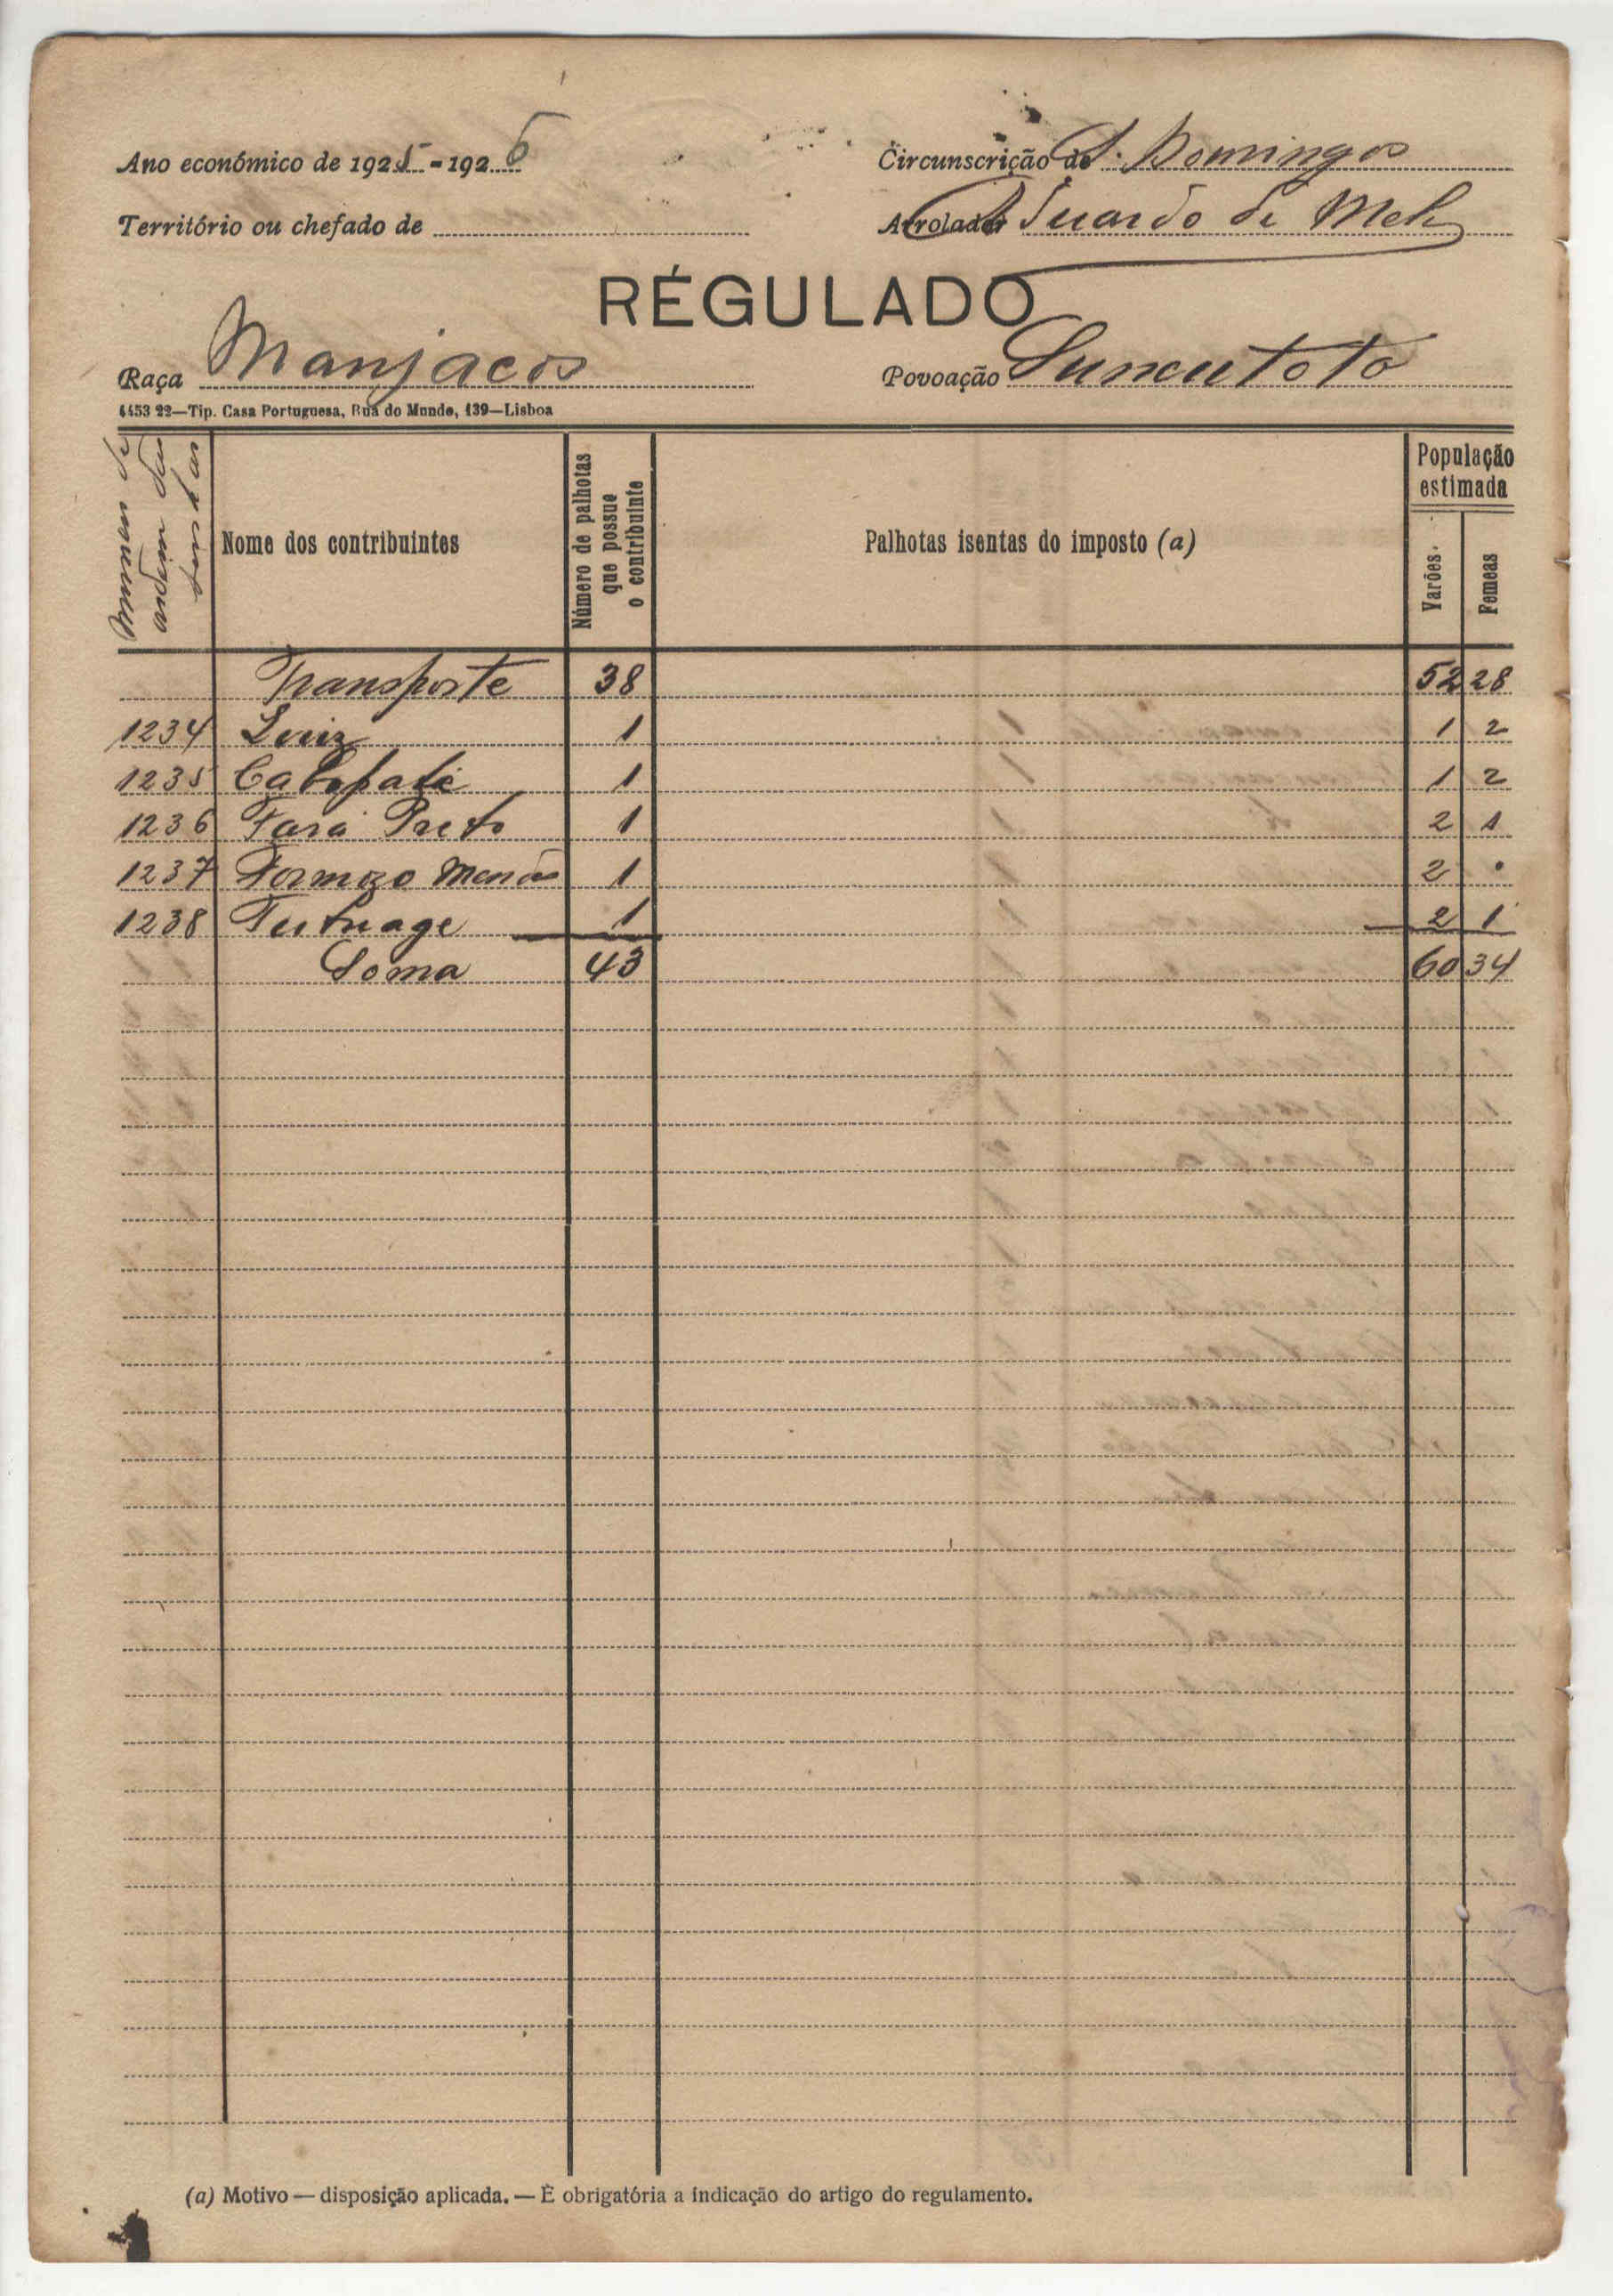 Ano económico de 1925-1926
Circunscrição de S. Domingos
Território ou chefado de
Arrolador Eduardo de Melo
RÉGULADO
Raça Manjacos
Povoação Suncutoto
4453 22—Tip. Casa Portuguesa, Rua do Mundo, 139—Lisboa
Numeros de
ordem dos
Nome dos contribuintes
Número de palhotas que possue o contribuinte
Palhotas isentas do imposto (a)
População estimada
Varões
Femeas
Transporte 38 52 28
1234 Luiz 1 1 2
1235 1 1 2
1236 Fara Preto 1 2 1
1237 Formozo Mendes 1 2 •
1238 1 2 1
Soma 43 60 34
(a) Motivo — disposição aplicada. — É obrigatória a indicação do artigo do regulamento.